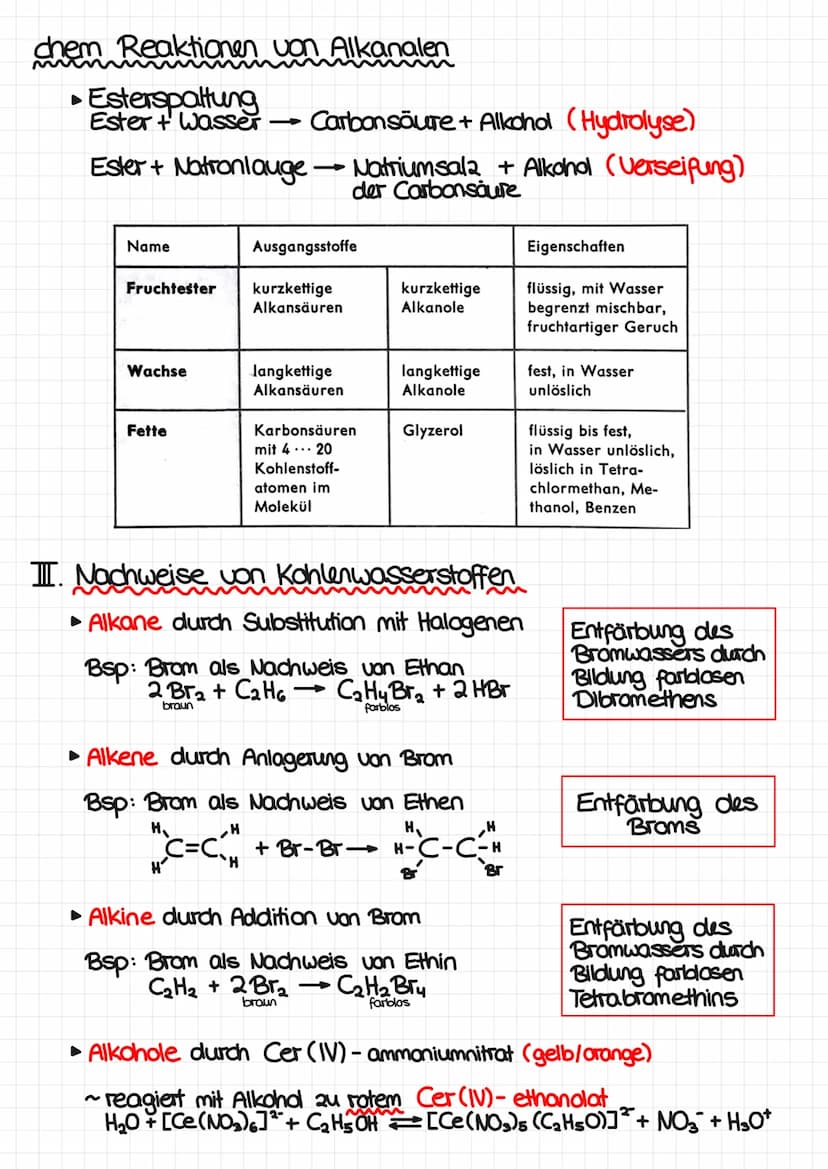 chem Reaktionen von Alkanalen
▸ Esterspaltung
Ester + Wasser → Carbonsäure + Alkohol (Hydrolyse)
Ester + Natronlauge → Natriumsalz + Alkohol (Verseifung)
der Carbonsäure
Name Ausgangsstoffe Eigenschaften
Fruchtester kurzkettige Alkansäuren kurzkettige Alkanole flüssig, mit Wasser begrenzt mischbar, fruchtartiger Geruch
Wachse langkettige Alkansäuren langkettige Alkanole fest, in Wasser unlöslich
Fette Karbonsäuren mit 4 ··· 20 Kohlenstoff- atomen im Molekül Glyzerol flüssig bis fest, in Wasser unlöslich, löslich in Tetra- chlormethan, Me- thanol, Benzen
III. Nachweise von Kohlenwasserstoffen
▸ Alkane durch Substitution mit Halogenen
Bsp: Brom als Nachweis von Ethan
2 Br₂ + C₂H₆ → C₂H₄Br₂ + 2 HBr
braun farblos
Entfärbung des
Bromwassers durch
Bildung farblosen
Dibromethens
▸ Alkene durch Anlagerung von Brom
Bsp: Brom als Nachweis von Ethen
H H H H
C=C + Br-Br → H-C-C-H
H H Br Br
Entfärbung des
Broms
▸ Alkine durch Addition von Brom
Bsp: Brom als Nachweis von Ethin
C₂H₂ + 2Br₂ → C₂H₂Br₄
braun farblos
Entfärbung des
Bromwassers durch
Bildung farblosen
Tetrabromethins
▸ Alkohole durch Cer (IV) - ammoniumnitrat (gelb/orange)
~ reagiert mit Alkohol zu rotem Cer (IV) - ethanolat
H₂O + [Ce(NO₃)₆]²⁻ + C₂H₅OH ⇌ [Ce(NO₃)₅ (C₂H₅O)]²⁻ + NO₃⁻ + H₃O⁺